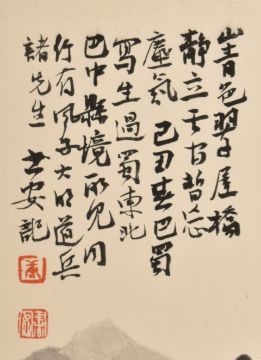 山青色翠屋橋
静立云可暫忘
塵氣 己丑春巴蜀
寫生過蜀東北
巴中縣境所见同
行有風子大明道兵
諸先生 士安記